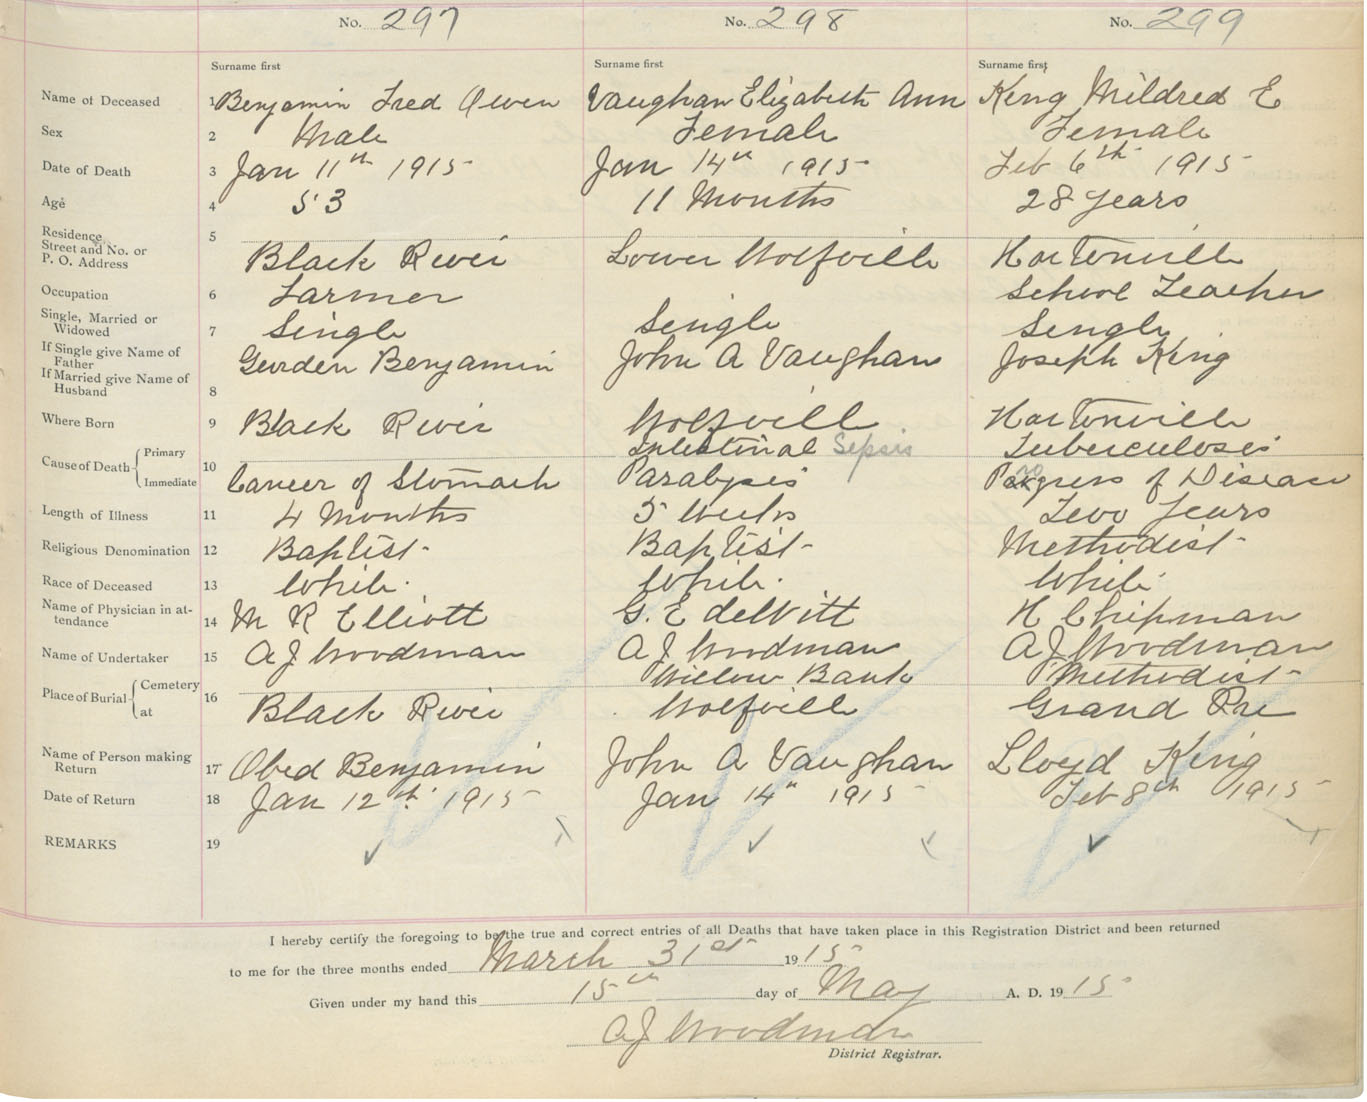 No. 297 No. 298 No. 299
Surname first Surname first Surname first
Name of Deceased 1 Benjamin Fred Owen Vaughan Elizabeth Ann King Mildred E
Sex 2 Male Female Female
Date of Death 3 Jan 11th 1915 Jan 14th 1915 Feb 6th 1915
Age 4 53 11 Months 28 Years
Residence Street and No. or P. O. Address 5 Black River Lower Wolfville Hortonville
Occupation 6 Farmer School Teacher
Single, Married or Widowed 7 Single Single Single
If Single give Name of Father Gurden Benjamin John A Vaughan Joseph King
If Married give Name of Husband 8
Where Born 9 Black River Wolfville Hortonville
Cause of Death Primary Intestinal Sepsis Tuberculosis
Immediate 10 Cancer of Stomach Paralysis Progress of Disease
Length of Illness 11 4 Months 5 Weeks Two Years
Religious Denomination 12 Baptist Baptist Methodist
Race of Deceased 13 White White White
Name of Physician in attendance 14 M R Elliott G. E deWitt H Chipman
Name of Undertaker 15 A J Woodman A J Woodman A J Woodman
Place of Burial Cemetery Willow Bank Methodist
at 16 Black River Wolfville Grand Pre
Name of Person making Return 17 Obed Benjamin John A Vaughan Lloyd King
Date of Return 18 Jan 12th 1915 Jan 14th 1915 Feb 8th 1915
REMARKS 19
I hereby certify the foregoing to be the true and correct entries of all Deaths that have taken place in this Registration District and been returned
to me for the three months ended March 31st 1915
Given under my hand this 15th day of May A. D. 1915
A J Woodman
District Registrar.